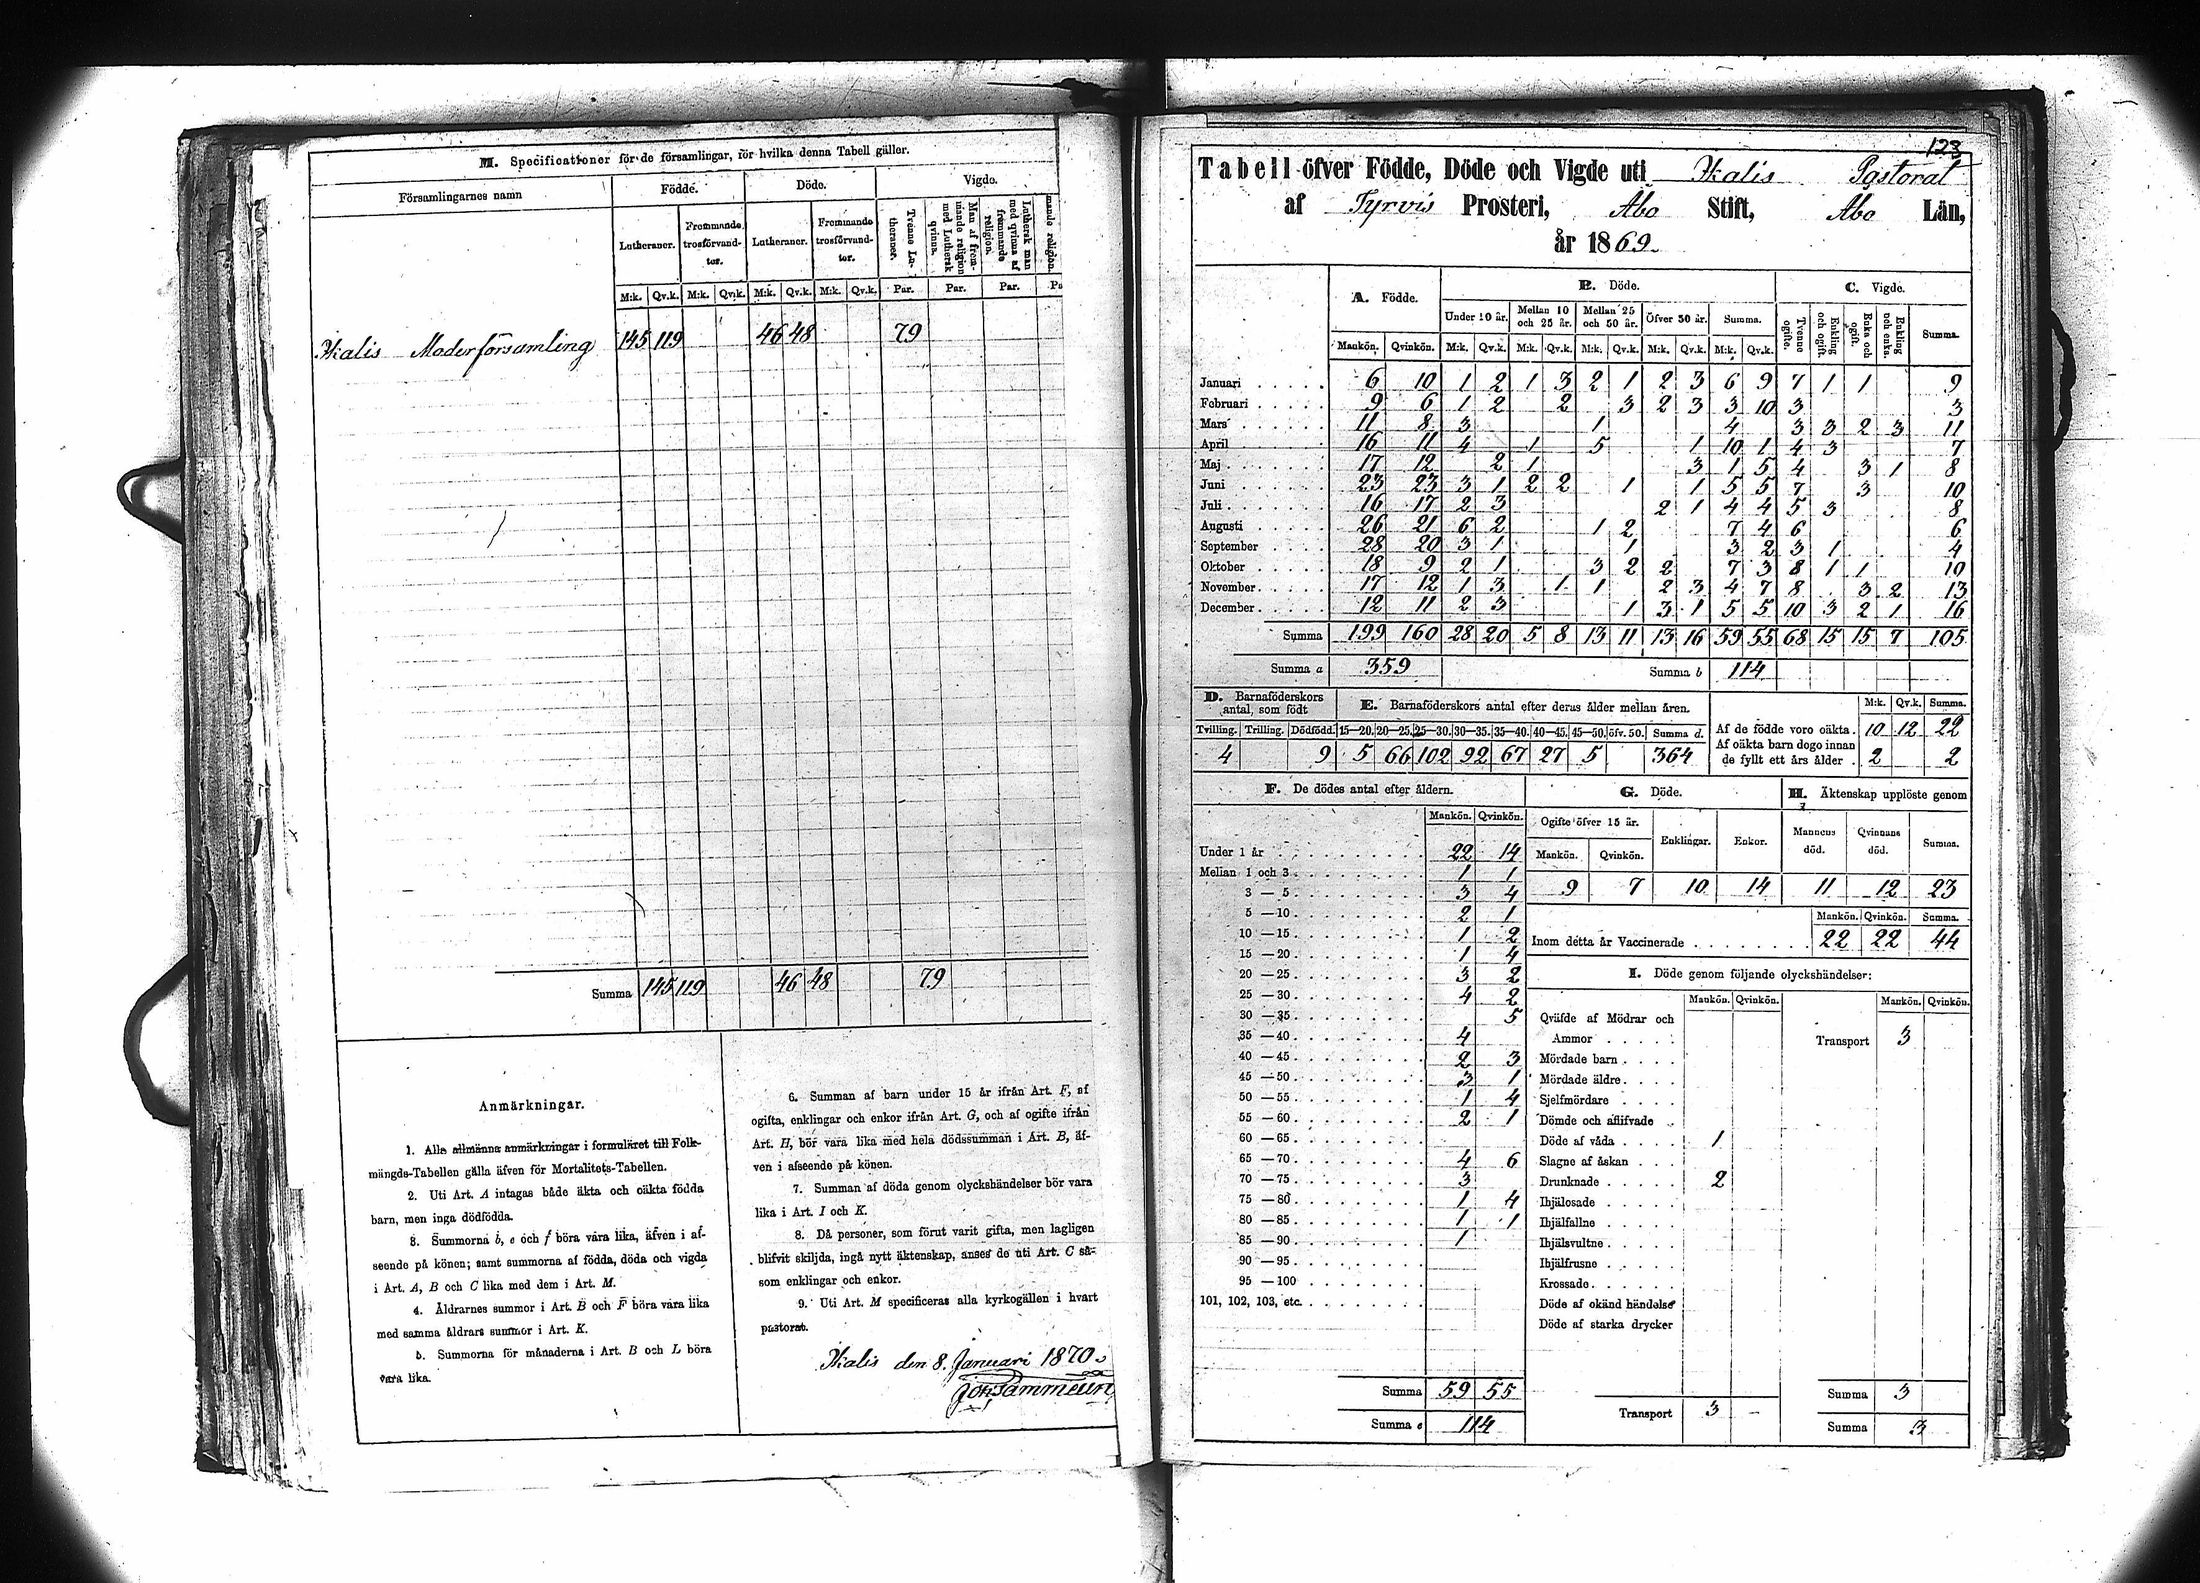 M. Specificationer för de församlingar, för hvilka denna Tabell gäller.
Församlingarnes namn Födde. Döde. Vigde.
Lutheraner. Främmande trosförvandter. Lutheraner. Främmande trosförvandter. Tvenne Lutheraner. Man af främmande religion med Luthersk qvinna. Luthersk man med qvinna af främmande religion.
M:k. Qv.k. M:k. Qv.k. M:k. Qv.k. M:k. Qv.k. Par. Par. Par.
Ikalis Moderförsamling 145 119 46 48 79
Summa 145 119 46 48 79
Anmärkningar.
1. Alla allmänna anmärkningar i formuläret till Folk-
mängds-Tabellen gälla äfven för Mortalitets-Tabellen.
2. Uti Art. A intagas både äkta och oäkta födda
barn, men inga dödfödda.
3. Summorna b, e och f böra vara lika, äfven i af-
seende på könen; samt summorna af födda, döda och vigda
i Art. A, B och C lika med dem i Art. M.
4. Åldrarnes summor i Art. B och F böra vara lika
med samma åldrars summor i Art. K.
5. Summorna för månaderna i Art. B och L böra
vara lika.
6. Summan af barn under 15 år ifrån Art. F, af
ogifta, enklingar och enkor ifrån Art. G, och af ogifte ifrån
Art. H, bör vara lika med hela dödssumman i Art. B, äf-
ven i afseende på könen.
7. Summan af döda genom olyckshändelser bör vara
lika i Art. I och K.
8. Då personer, som förut varit gifta, men lagligen
blifvit skiljda, ingå nytt äktenskap, anses de uti Art. C så-
som enklingar och enkor.
9. Uti Art. M specificeras alla kyrkogällen i hvart
pastorat.
Ikalis den 8. Januari 1870.
123
Tabell öfver Födde, Döde och Vigde uti Ikalis Pastorat
af Tyrvis Prosteri, Åbo Stift, Åbo Län,
år 1869.
A. Födde. B. Döde. C. Vigde.
Under 10 år. Mellan 10 och 25 år. Mellan 25 och 50 år. Öfver 50 år. Summa. Tvenne ogifte. Enkling och ogift. Enka och ogift. Enkling och enka. Summa.
Mankön. Qvinkön. M:k. Qv.k. M:k. Qv.k. M:k. Qv.k. M:k. Qv.k. M:k. Qv.k.
Januari 6 10 1 2 1 3 2 1 2 3 6 9 7 1 1 9
Februari 9 6 1 2 2 3 2 3 3 10 3 3
Mars 11 8 3 1 4 3 3 2 3 11
April 16 11 4 1 5 1 10 1 4 3 7
Maj 17 12 2 1 3 1 5 4 3 1 8
Juni 23 23 3 1 2 2 1 1 5 5 7 3 10
Juli 16 17 2 3 2 1 4 4 5 3 8
Augusti 26 21 6 2 1 2 7 4 6 6
September 28 20 3 1 1 3 2 3 1 4
Oktober 18 9 2 1 3 2 2 7 3 8 1 1 10
November 17 12 1 3 1 1 2 3 4 7 8 3 2 13
December 12 11 2 3 1 3 1 5 5 10 3 2 1 16
Summa 199 160 28 20 5 8 13 11 13 16 59 55 68 15 15 7 105
Summa a 359 Summa b 114
D. Barnaföderskors antal, som födt
Tvilling. Trilling. Dödfödd.
4 9
E. Barnaföderskors antal efter deras ålder mellan åren.
15—20. 20—25. 25—30. 30—35. 35—40. 40—45. 45—50. öfv. 50. Summa d.
5 66 102 92 67 27 5 364
M:k. Qv.k. Summa.
Af de födde voro oäkta. 10 12 22
Af oäkta barn dogo innan
de fyllt ett års ålder. 2 2
F. De dödes antal efter åldern.
Mankön. Qvinkön.
Under 1 år 22 14
Mellan 1 och 3 1 1
3 — 5 3 4
5 — 10 2 1
10 — 15 1 2
15 — 20 1 4
20 — 25 3 2
25 — 30 4 2
30 — 35 5
35 — 40 4
40 — 45 2 3
45 — 50 3 1
50 — 55 1 4
55 — 60 2 1
60 — 65
65 — 70 4 6
70 — 75 3
75 — 80 1 4
80 — 85 1 1
85 — 90 1
90 — 95
95 — 100
101, 102, 103, etc.
Summa 59 55
Summa e 114
G. Döde.
Ogifte öfver 15 år. Enklingar. Enkor.
Mankön. Qvinkön.
9 7 10 14
H. Äktenskap upplöste genom
Mannens död. Qvinnans död. Summa.
11 12 23
Mankön. Qvinkön. Summa.
Inom detta år Vaccinerade 22 22 44
I. Döde genom följande olyckshändelser:
Mankön. Qvinkön. Mankön. Qvinkön.
Qväfde af Mödrar och
Ammor Transport 3
Mördade barn
Mördade äldre
Sjelfmördare
Dömde och aflifvade
Döde af våda 1
Slagne af åskan
Drunknade 2
Ihjälosade
Ihjälfallne
Ihjälsvultne
Ihjälfrusne
Krossade
Döde af okänd händelse
Döde af starka drycker
Transport 3 —
Summa 3
Summa 3